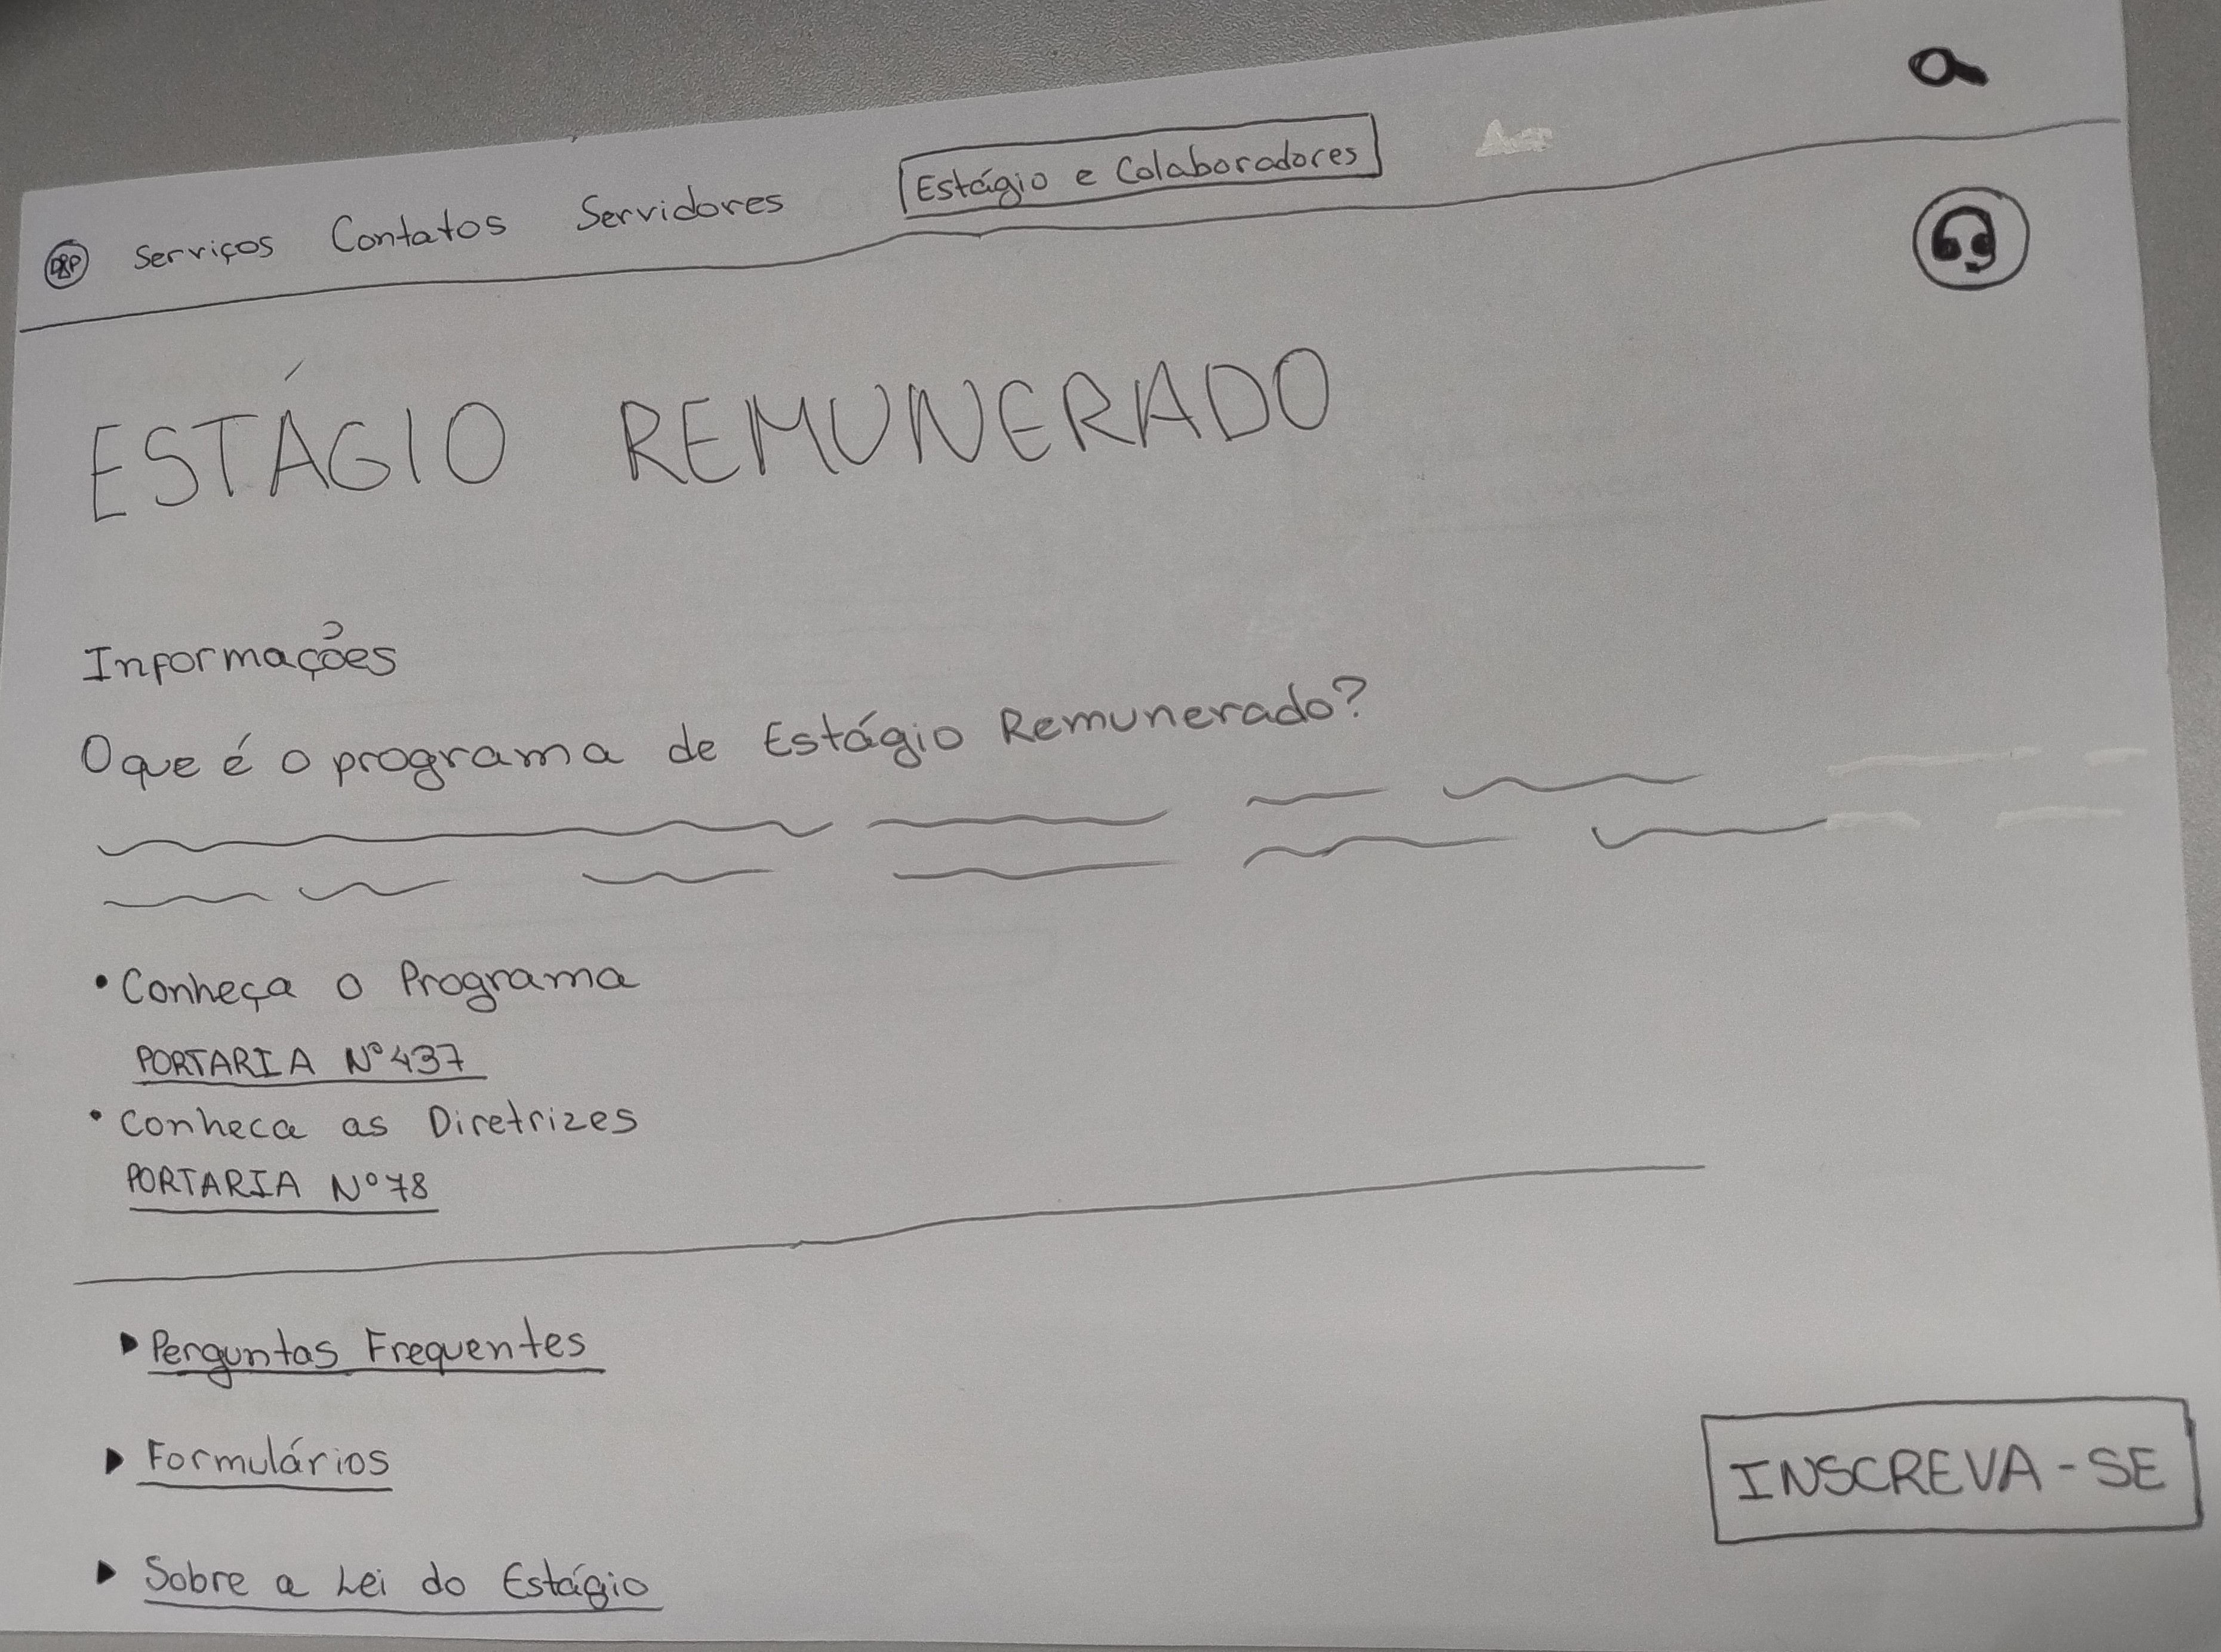 DRP Serviços Contatos Servidores Estágio e Colaboradores
ESTÁGIO REMUNERADO
Informações
O que é o programa de Estágio Remunerado?
• Conheça o Programa
PORTARIA Nº 437
• Conheca as Diretrizes
PORTARIA Nº 78
Perguntas Frequentes
Formulários
INSCREVA-SE
Sobre a Lei do Estágio